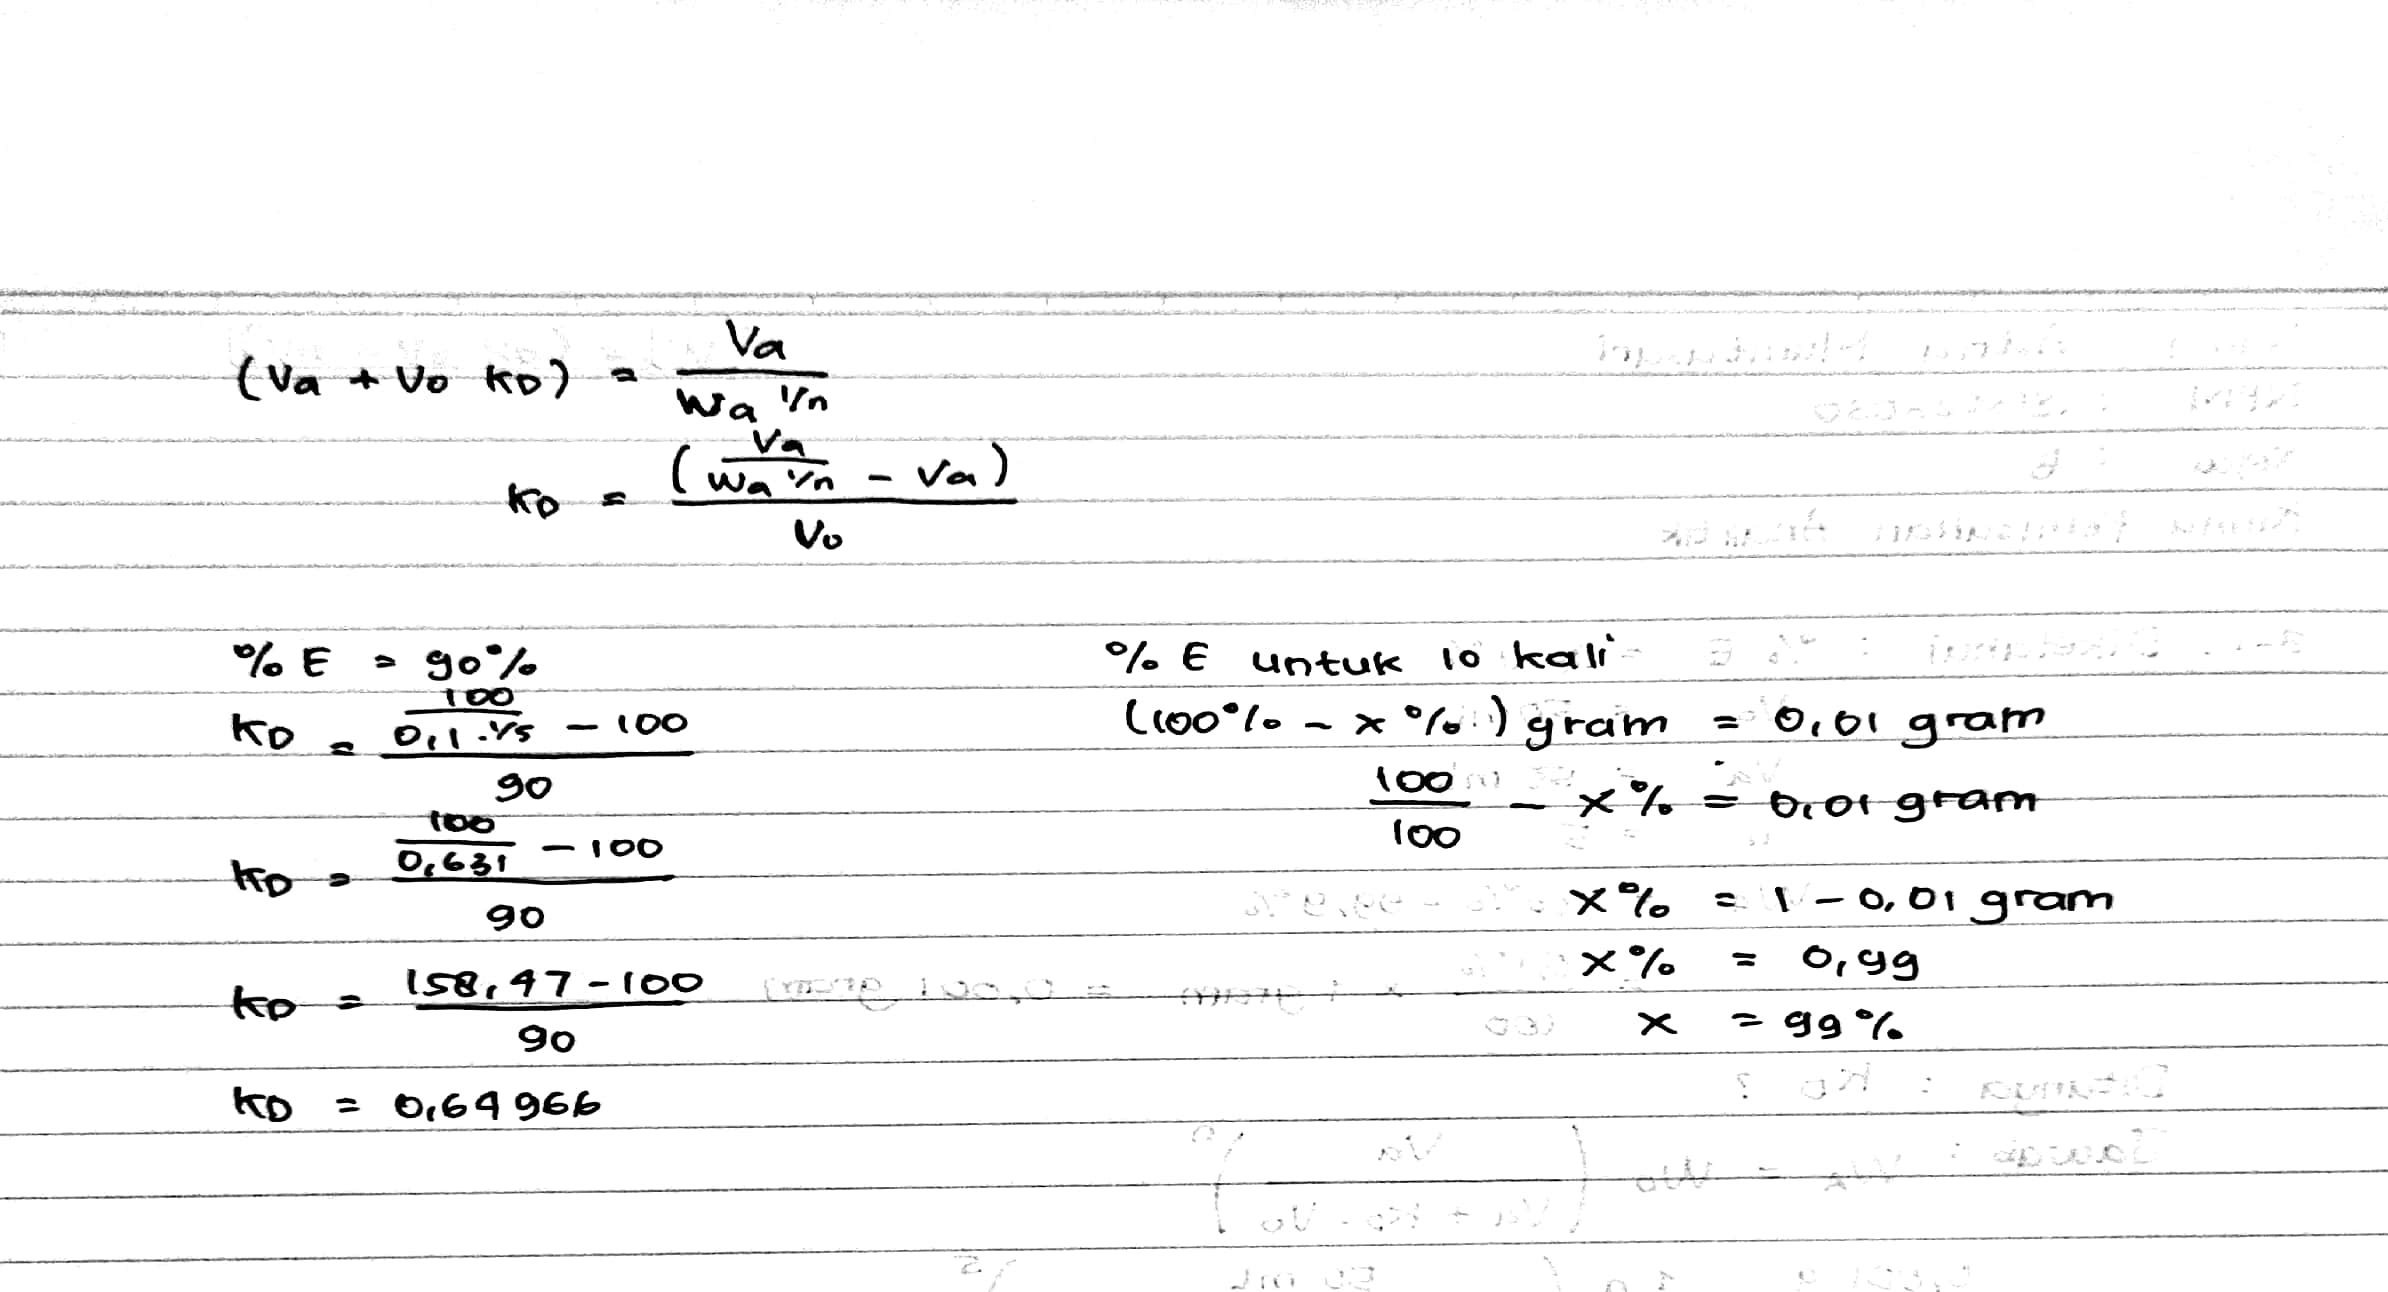 (Va + Vo KD) = Va / Wa 1/n
KD = (Va / Wa 1/n - Va) / Vo
% E = 90%
KD = 100 / 0,1 . 1/5 - 100 / 90
KD = 100 / 0,631 - 100 / 90
KD = 158,47 - 100 / 90
KD = 0,64966
% E untuk 10 kali
(100% - x %) gram = 0,01 gram
100 / 100 - x % = 0,01 gram
x % = 1 - 0,01 gram
x % = 0,99
x = 99 %